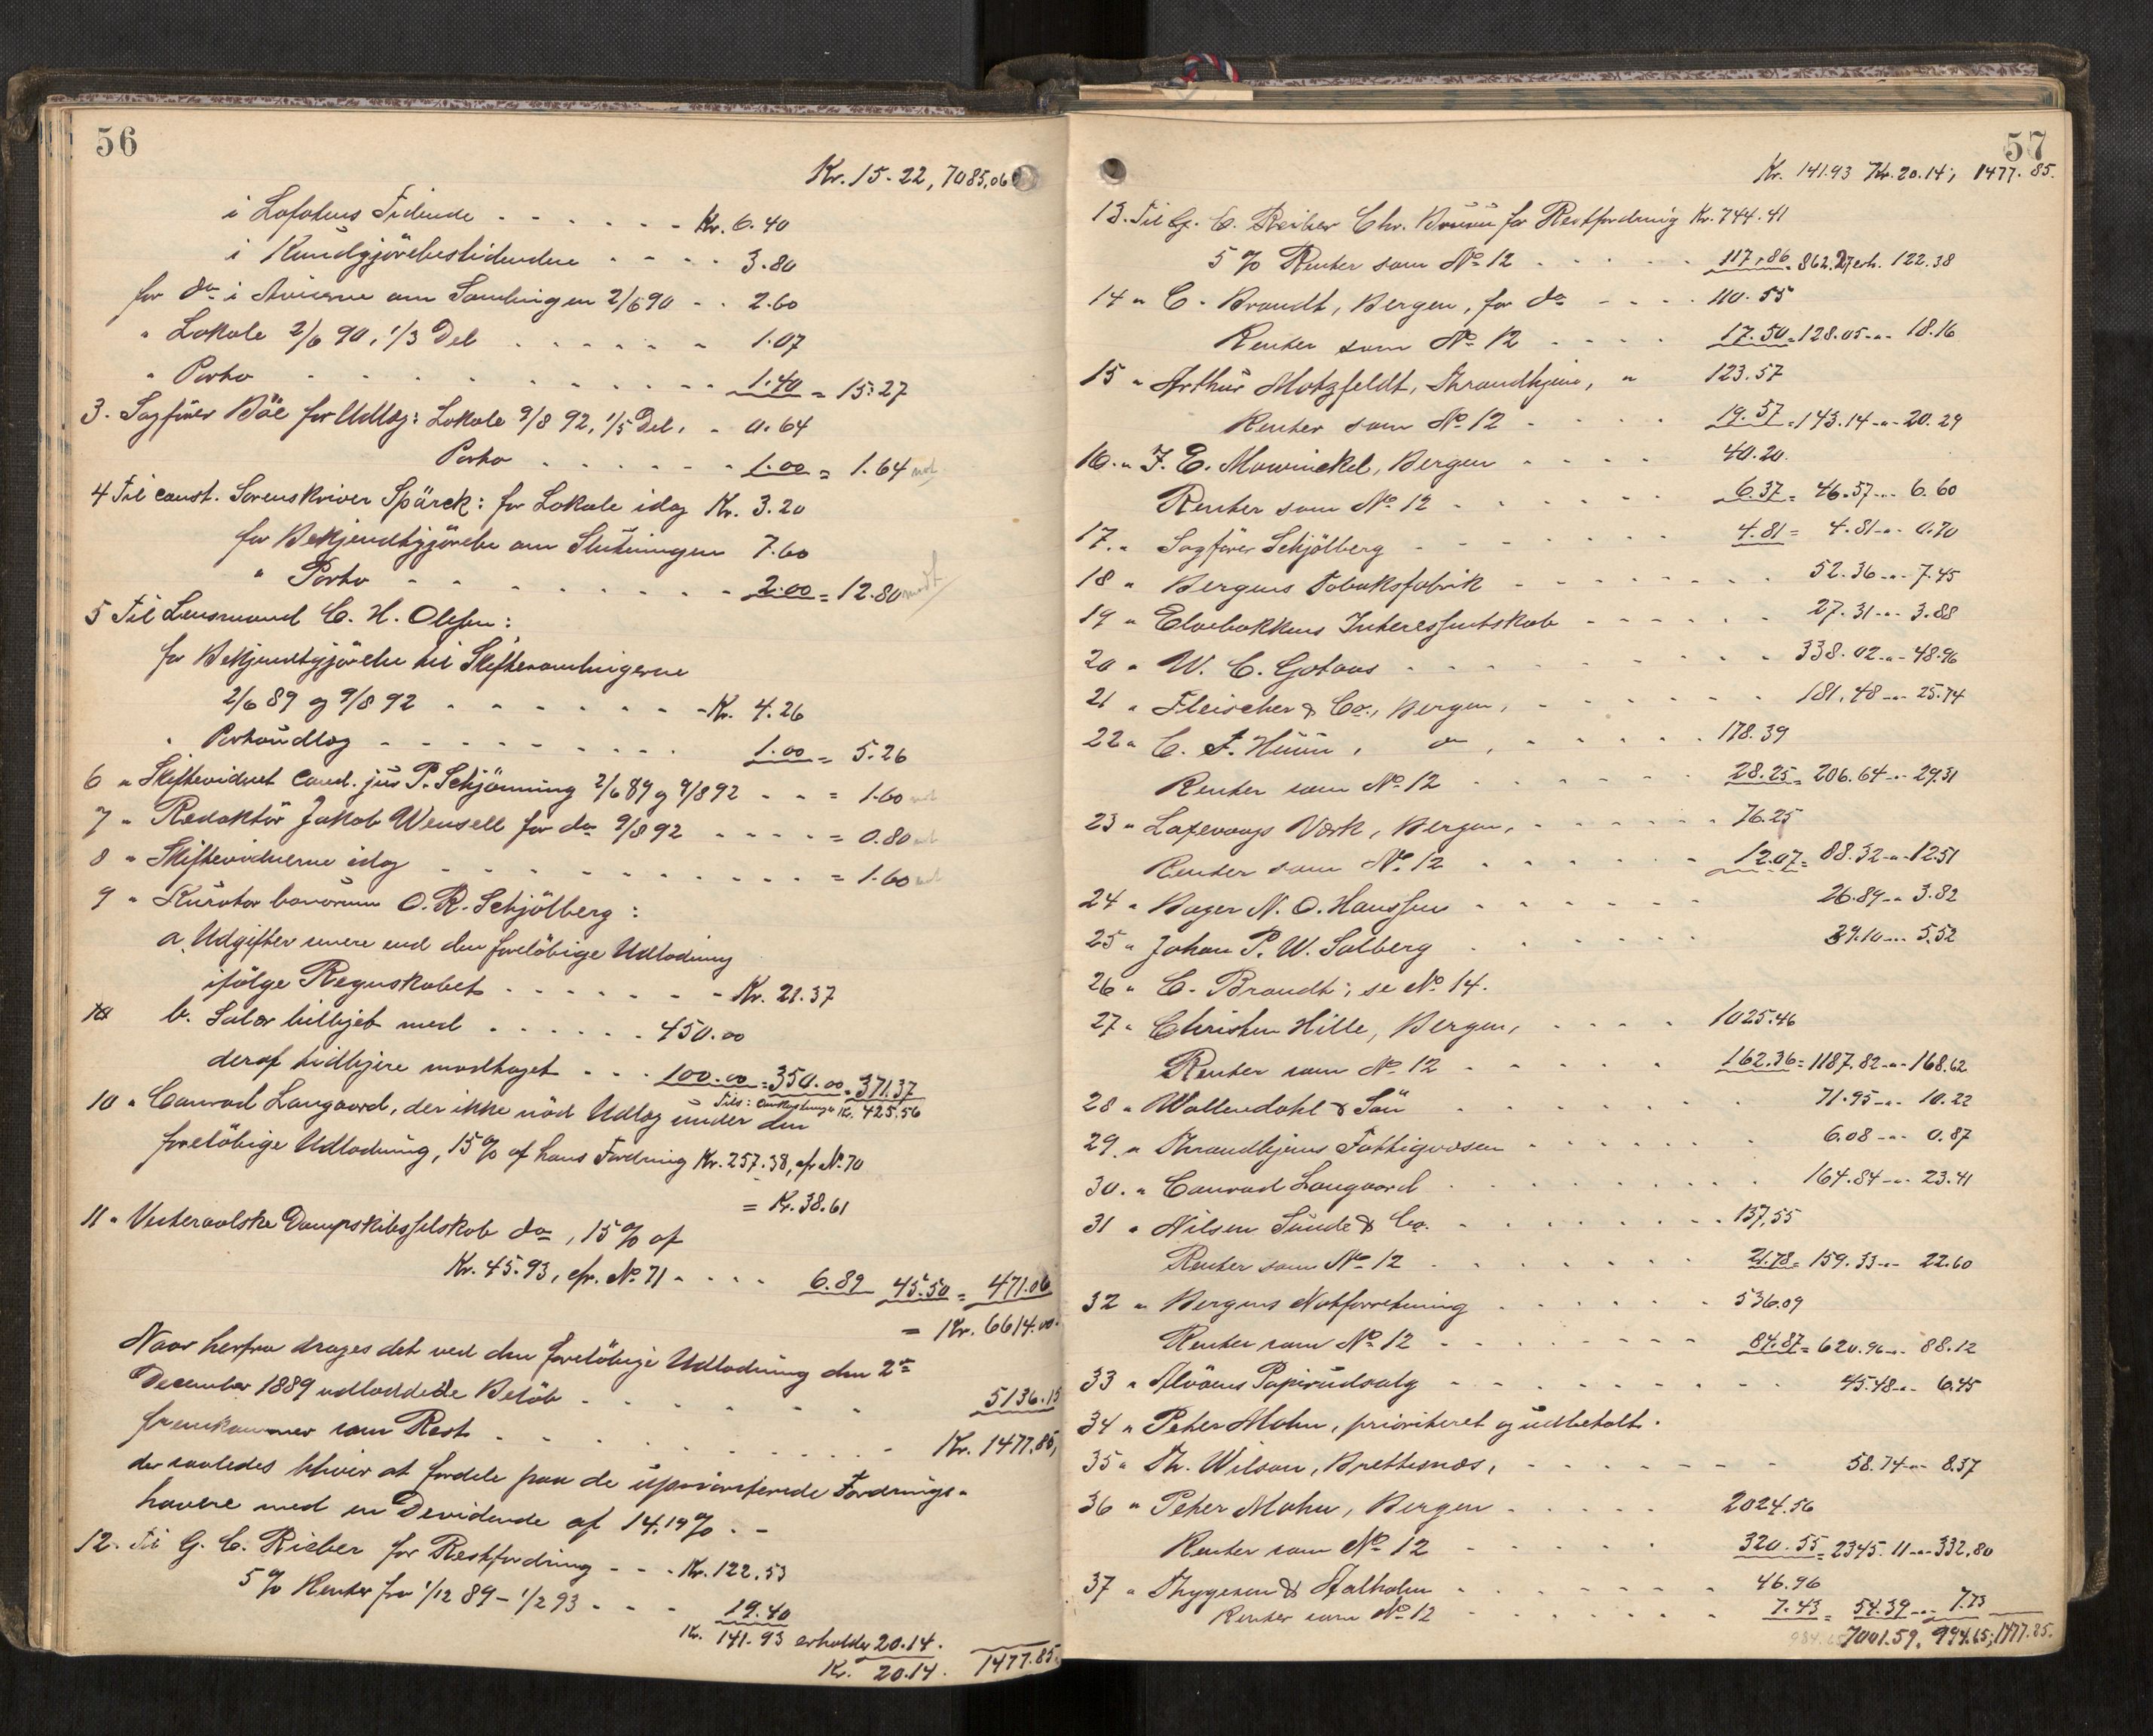 56
Kr. 15.22, 7085,06
i Lofotens Tidende - - - - - - Kr. 6.40
i Kundgjörelsestidende - - - - 3.80
for do i Aviserne om Samlingen 2/6 90 - - 2.60
" Lokale 2/6 90, 1/3 Del - - - - - - 1.07
" Porto - - - - - - - - - 1.40 = 15.27
3. Sagförer Böe for Udlæg: Lokale 9/8 92, 1/5 Del, - 0.64
Porto - - - - - - 1.00 = 1.64
4 Til const. Sorenskriver Spärck: for Lokale idag Kr. 3.20
for Bekjendtgjörelse om Slutningen 7.60
" Porto - - - - - - - - 2.00 = 12.80
5 Til Lensmand C. H. Olsen:
for Bekjendtgjörelse til Skiftesamlingerne
2/6 89 og 9/8 92 - - - - - - - Kr. 4.26
" Portoudlæg - - - - - - - - 1.00 = 5.26
6 " Skiftevidnet Cand. jus P. Schjönning 2/6 89 og 9/8 92 - - = 1.60
7 " Redaktör Jakob Wensell for do 9/8 92 - - - - = 0.80
8 " Skiftevidnerne idag - - - - - - - - - - = 1.60
9 " Kurator bonorum O. R. Schjölberg:
a. Udgifter senere end den forelöbige Udlodning
ifölge Regnskabet - - - - - - - Kr. 21.37
b. Salær billiget med - - - - - - 450.00
deraf tidligere modtaget - - - 100.00 = 350.00 = 371.37
Tils: Kr. 425.56
10 " Conrad Langaard, der ikke nöd Udlæg under den
forelöbige Udlodning, 15 % af hans Fordring Kr. 257.38, cfr No 70
= Kr. 38.61
11 " Vesteraalske Dampskibsselskab do, 15 % af
Kr. 45.93, cfr. No 71 - - - - 6.89 45.50 = 471.06
= Kr. 6614.00
Naar herfra drages det ved den forelöbige Udlodning den 2den
December 1889 udloddede Belöb - - - - - - 5136.15
fremkommer som Rest - - - - - - - - - Kr. 1477.85,
der saaledes bliver at fordele paa de upriorterede Fordrings-
havere med en Devidende af 14.19 %. -
12. Til G. C. Rieber for Restfordring - - - Kr. 122.53
5 % Renter fra 1/12 89 - 1/2 93 - - - 19.40
Kr. 141.93 erholder 20.14.
Kr. 20.14. 1477.85.
57
Kr. 141.93 Kr. 20.14, 1477.85.
13. Til G. C. Reiber Chr. Bruun for Restfordring Kr. 744.41
5 % Renter som No 12 - - - - - 117.86 = 862.27 erh. 122.38
14 " C. Brandt, Bergen, for do - - - - 110.55
Renter som No 12 - - - - 17.50 = 128.05 - " - 18.16
15 " Arthur Motzfeldt, Throndhjem, " 123.57
Renter som No 12 - - - - 19.57 = 143.14 - " - 20.29
16. " F. E. Mowinckel, Bergen - - - - 40.20.
Renter som No 12 - - - - - - 6.37 = 46.57 - " - 6.60
17. " Sagförer Schjölberg - - - - - - - 4.81 = 4.81 - " - 0.70
18 " Bergens Tobaksfabrik - - - - - - - 52.36 - " - 7.45
19 " Elvebakkens Interessentskab - - - - - - 27.31 - " - 3.88
20 " W. C. Gotaas - - - - - - - - - 338.02 - " - 48.96
21 " Fleischer & Co., Bergen, - - - - - - 181.48 - " - 25.74
22 " C. F. Huun, do, - - - - - 178.39
Renter som No 12 - - - - - - 28.25 = 206.64 - " - 29.31
23 " Laxevaags Værk, Bergen, - - - - - - 76.25
Renter som No 12 - - - - - - 12.07 = 88.32 - " - 12.51
24 " Bager N. O. Hanssen - - - - - - 26.89 - " - 3.82
25 " Johan P. W. Solberg - - - - - - 39.10 - " - 5.52
26 " C. Brandt; se No 14.
27 " Christen Hille, Bergen, - - - - 1025.46
Renter som No 12 - - - - - - 162.36 = 1187.82 - " - 168.62
28 " Wallendahl & Sön - - - - - - - 71.95 - " - 10.22
29. " Throndhjems Fattigvæsen - - - - - - 6.08 - " - 0.87
30. " Conrad Langaard - - - - - - - - 164.84 - " - 23.41
31 " Nilsen Sunde & Co. - - - - - - - 137,55
Renter som No 12 - - - - - - - 21.78 = 159.33 - " - 22.60
32 " Bergens Notforretning - - - - - - 536.09
Renter som No 12 - - - - - - - 84.87 = 620.96 - " - 88.12
33 " Alvöens Papirudsalg - - - - - - - - - 45.48 - " - 6.45
34 " Peter Mohn, prioriteret og udbetalt.
35 " Th. Wilson, Brettesnæs, - - - - - - - 58.74 - " - 8.37
36 " Peter Mohn, Bergen - - - - - 2024.56
Renter som No 12 - - - - - - 320.55 = 2345.11 - " - 332.80
37 " Thygesen & Stalholm - - - - - - - 46.96
Renter som No 12 - - - - - - - 7.43 = 54.39 - " - 7.73
7001.59. 994.65; 1477.85.